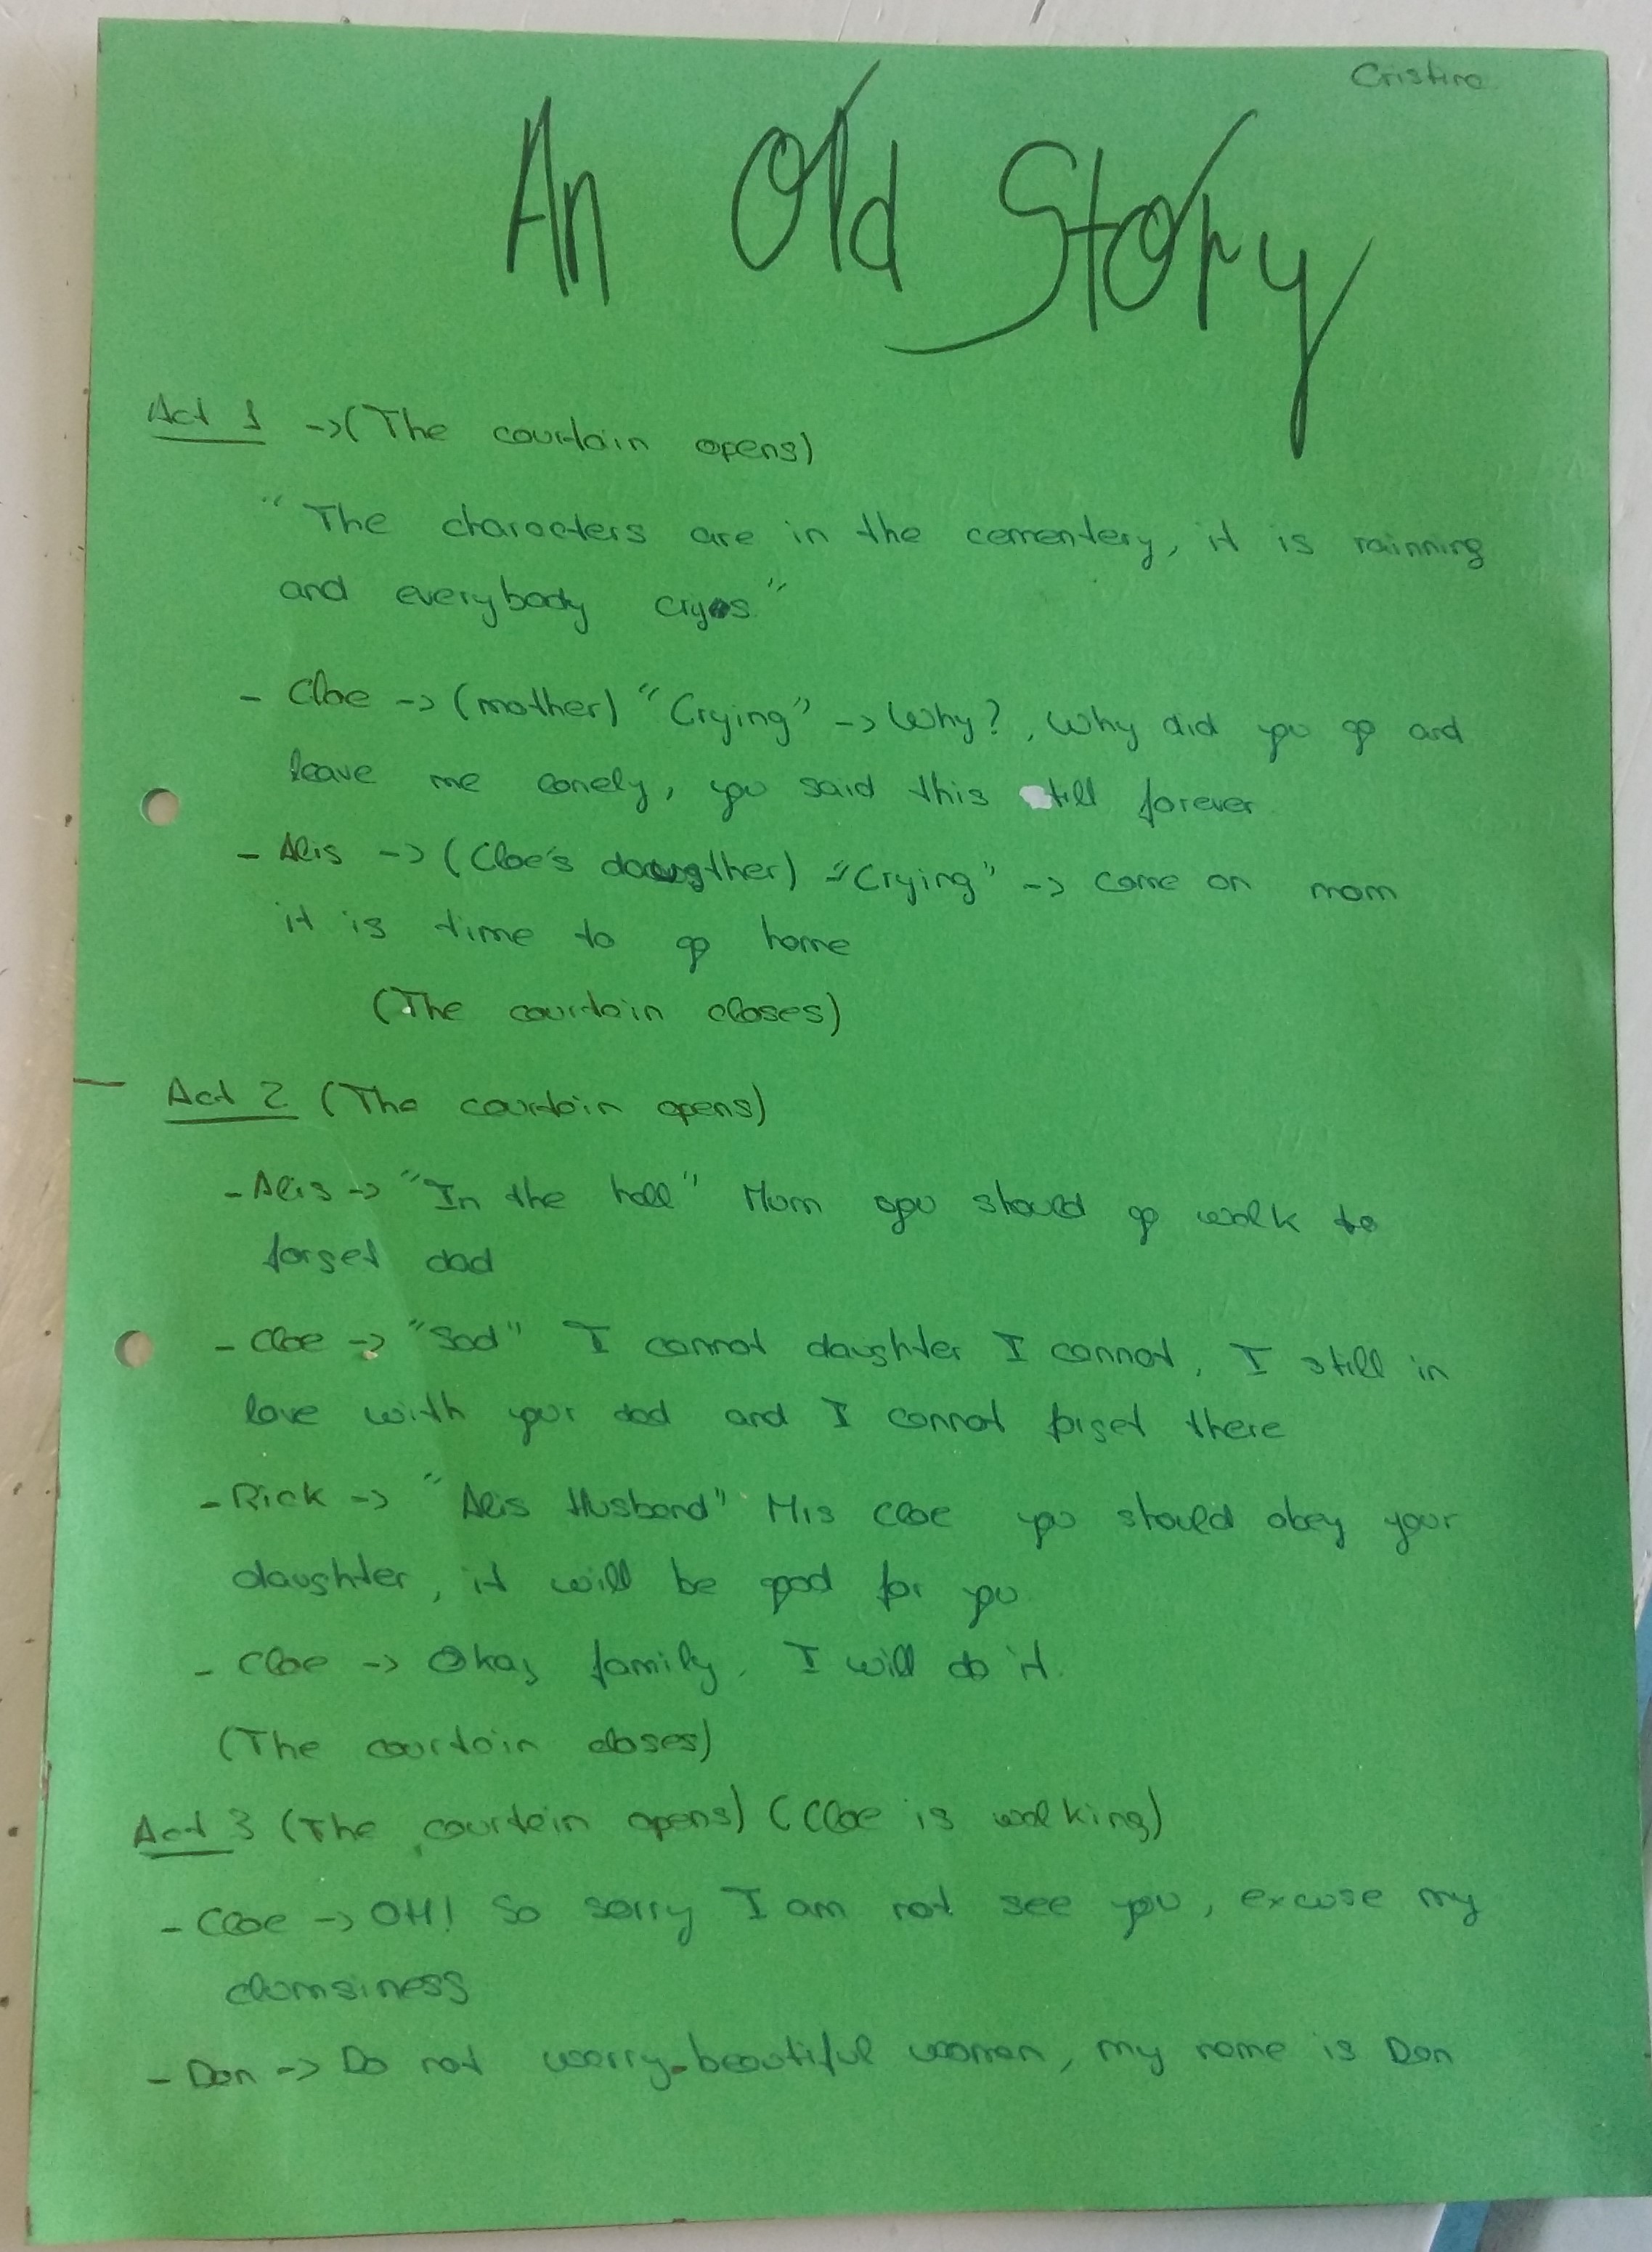 Cristina
An Old Story
Act 1 -> (The courtain opens)
"The characters are in the cementery, it is rainning
and everybody cryes."
- Cloe -> (mother) "Crying" -> Why?, Why did you go and
leave me lonely, you said this till forever
- Alis -> (Cloe's daougther) "Crying" -> come on mom
it is time to go home
(The courtain closes)
Act 2 (The courtain opens)
- Alis -> "In the hall" Mum you should go walk to
forget dad
- Cloe -> "Sad" I cannot daughter I cannot, I still in
love with your dad and I cannot forget there
- Rick -> "Alis Husband" Mis Cloe you should obey your
daughter, it will be good for you
- Cloe -> Okay family, I will do it.
(The courtain closes)
Act 3 (The courtain opens) (Cloe is walking)
- Cloe -> OH! So sorry I am not see you, excuse my
clumsiness
- Dan -> Do not worry beautiful woman, my name is Dan